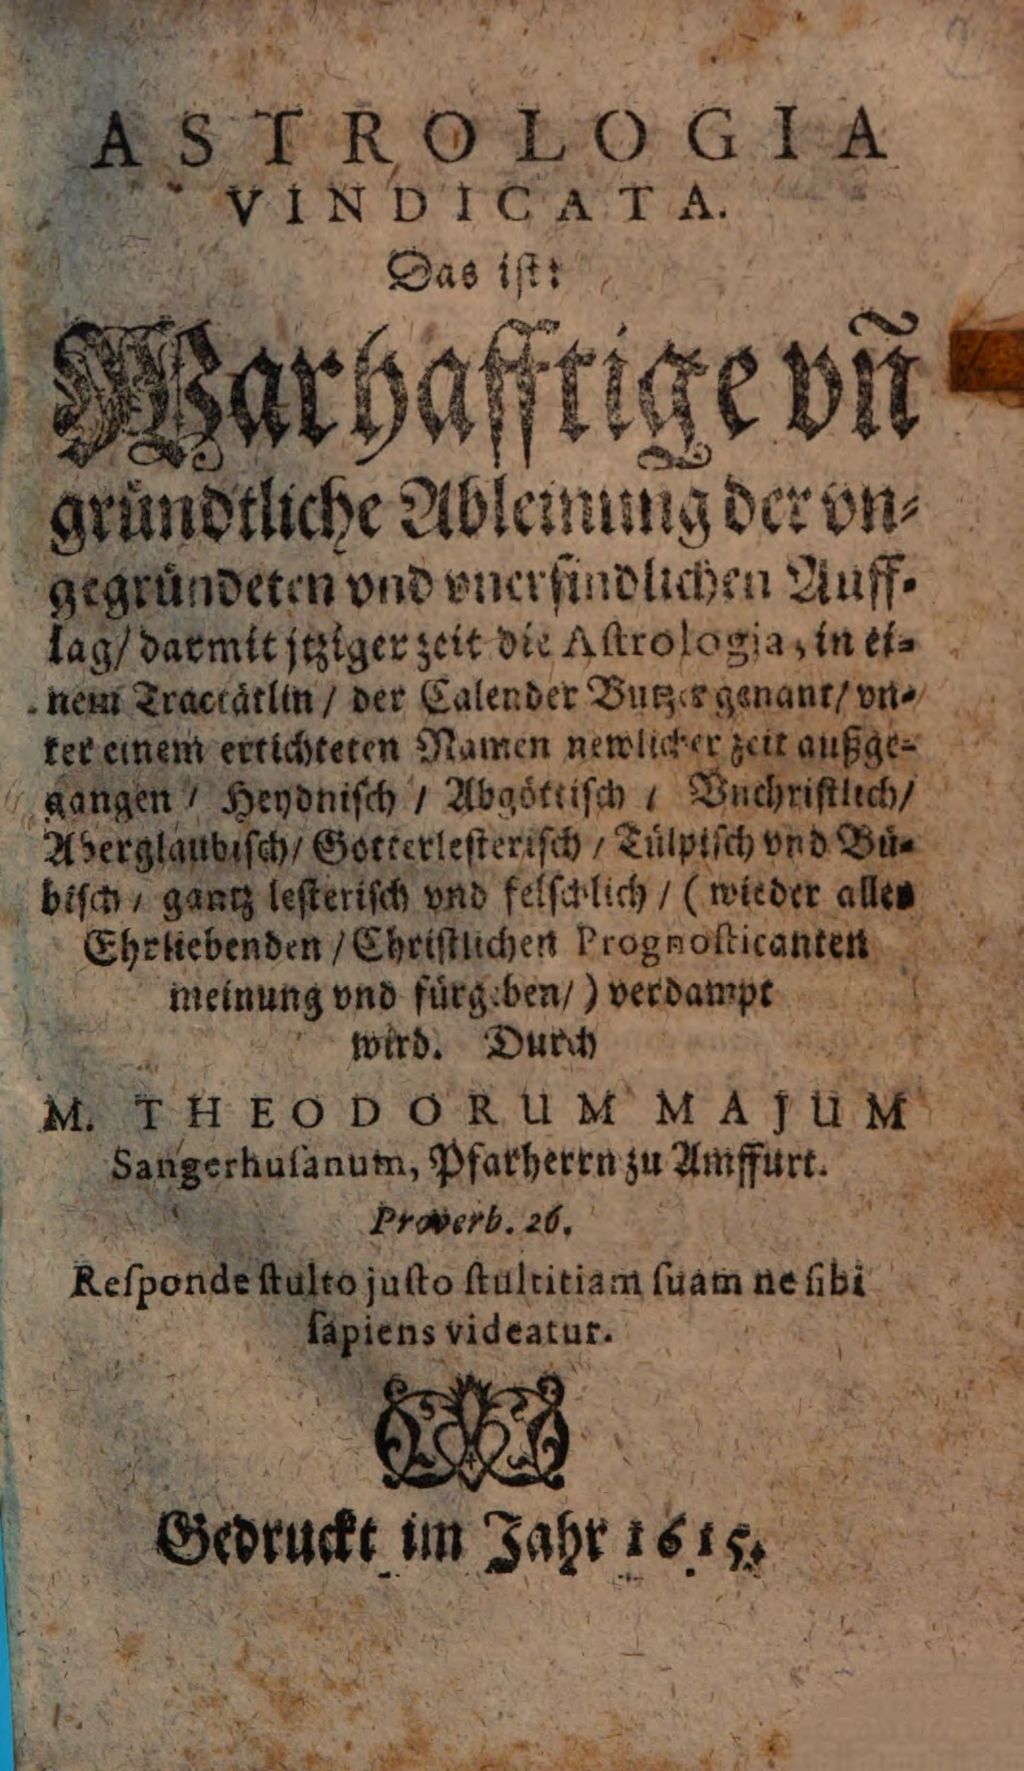 ASTROLOGIA
VINDICATA.
Das ist:
Warhafftige vñ
gründtliche Ableinung der vn⸗
gegründeten vnd vnerfindlichen Auff⸗
lag/ darmit jtziger zeit die Astrologia, in ei⸗
nem Tractätlin / der Calender Butzer genant/ vn⸗
ter einem ertichteten Namen newlicher zeit außge⸗
gangen / Heydnisch / Abgöttisch / Vnchristlich/
Aberglaubisch/ Gotteslesterisch / Tülpisch vnd Bü⸗
bisch / gantz lesterisch vnd felschlich / (wieder aller
Ehrliebenden / Christlichen Prognosticanten
meinung vnd fürgeben/) verdampt
wird. Durch
M. THEODORUM MAJUM
Sangerhusanum, Pfarherrn zu Amffurt.
Proverb. 26.
Responde stulto justo stultitiam suam ne sibi
sapiens videatur.
Gedruckt im Jahr 1615.